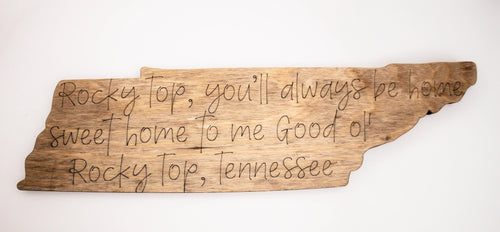 Rocky Top, you'll always be home
sweet home to me Good ol'
Rocky Top, Tennessee